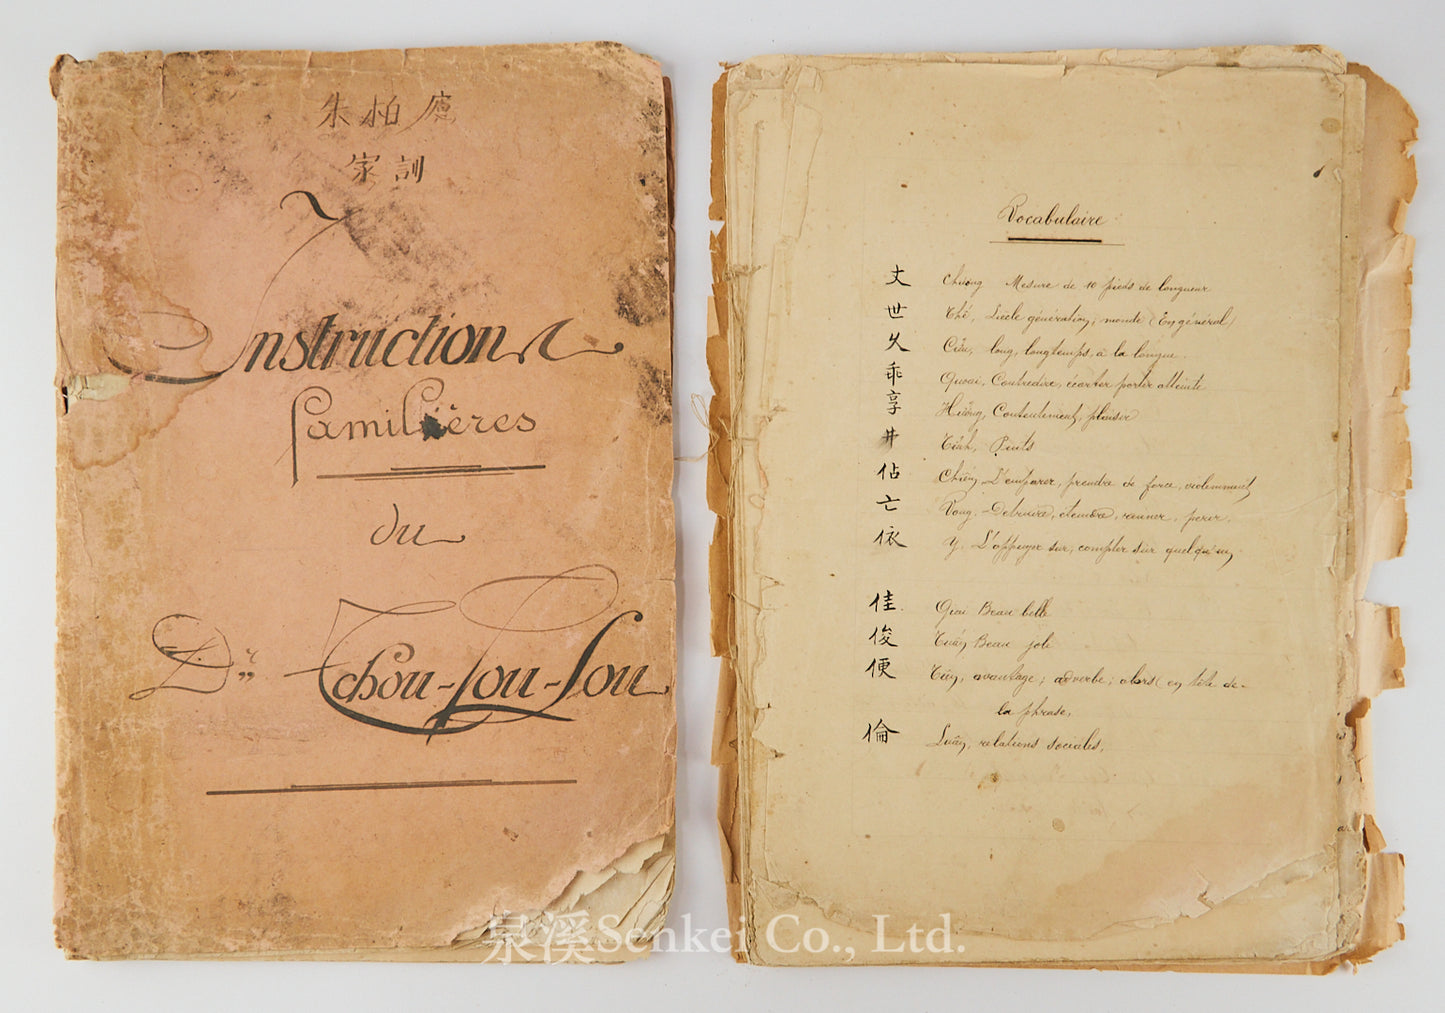 朱柏廬
家訓
Instructions
familières
du
Dr Tchou-Pou-Lou
Vocabulaire
丈 Chượng Mesure de 10 pieds de longueur
世 Thế, Siècle génération, monde (En général)
久 Cửu, long, longtemps, à la longue.
乖 Quai, Contredire, écarter porter atteinte
享 Hưởng, Contentement, plaisir
井 Tỉnh, Puits
佔 Chiếm S'emparer, prendre de force, violemment
亡 Vong, Détruire, étendre, ruiner, périr.
依 Y. S'appuyer sur, compter sur quelqu'un
佳 Giai Beau belle
俊 Tuấn Beau joli
便 Tiện, avantage; adverbe; alors (en tête de
la phrase,
倫 Luân, relations sociales,
泉溪Senkei Co., Ltd.